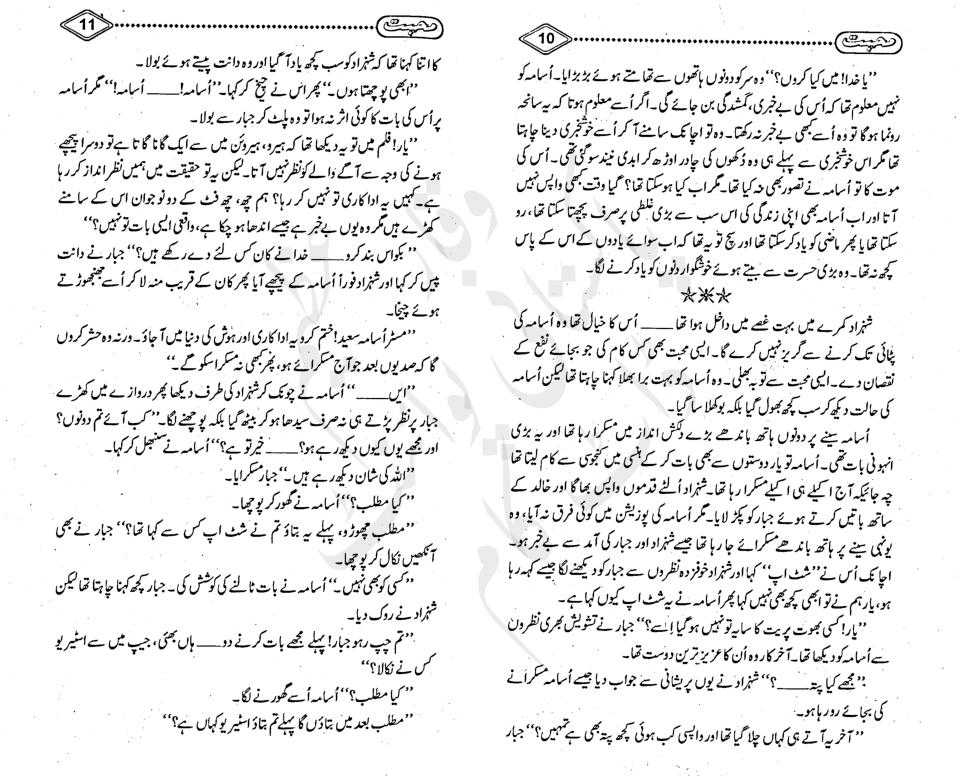 محبت
10
”یا خدا! میں کیا کروں؟“ وہ سر کو دونوں ہاتھوں سے تھامتے ہوئے بڑبڑایا۔ اُسامہ کو
نہیں معلوم تھا کہ اُس کی بے خبری، گمشدگی بن جائے گی۔ اگر اُسے معلوم ہوتا کہ یہ سانحہ
رونما ہو گا تو وہ اُسے کبھی بے خبر نہ رکھتا۔ وہ تو اچانک سامنے آ کر اُسے خوشخبری دینا چاہتا
تھا مگر اس خوشخبری سے پہلے ہی وہ دُکھوں کی چادر اوڑھ کر ابدی نیند سو گئی تھی۔ اُس کی
موت کا تو اُسامہ نے تصور بھی نہ کیا تھا۔ مگر اب کیا ہو سکتا تھا؟ گیا وقت کبھی واپس نہیں
آتا اور اب اُسامہ بھی اپنی زندگی کی اس سب سے بڑی غلطی پر صرف پچھتا سکتا تھا، رو
سکتا تھا یا پھر ماضی کو یاد کر سکتا تھا اور سچ تو یہ تھا کہ اب سوائے یادوں کے اس کے پاس
کچھ نہ تھا۔ وہ بڑی حسرت سے بیتے ہوئے خوشگوار دنوں کو یاد کرنے لگا۔
✯✯✯
شہزاد کمرے میں بہت غصے میں داخل ہوا تھا ____ اُس کا خیال تھا وہ اُسامہ کی
پٹائی تک کرنے سے گریز نہیں کرے گا۔ ایسی محبت بھی کس کام کی جو بجائے نفع کے
نقصان دے۔ ایسی محبت سے تو یہ بھلی۔ وہ اُسامہ کو بہت برا بھلا کہنا چاہتا تھا لیکن اُسامہ
کی حالت دیکھ کر سب کچھ بھول گیا بلکہ بوکھلا سا گیا۔
اُسامہ سینے پر دونوں ہاتھ باندھے بڑے دلکش انداز میں مسکرا رہا تھا اور یہ بڑی
انہونی بات تھی۔ اُسامہ تو یار دوستوں سے بھی بات کر کے ہنسی میں کنجوسی سے کام لیتا تھا
چہ جائیکہ آج اکیلے ہی اکیلے مسکرا رہا تھا۔ شہزاد اُلٹے قدموں واپس بھاگا اور خالد کے
ساتھ باتیں کرتے ہوئے جبار کو پکڑ لایا۔ مگر اُسامہ کی پوزیشن میں کوئی فرق نہ آیا، وہ
یونہی سینے پر ہاتھ باندھے مسکرائے جا رہا تھا جیسے شہزاد اور جبار کی آمد سے بے خبر ہو۔
اچانک اُس نے ”شٹ اپ“ کہا اور شہزاد خوفزدہ نظروں سے جبار کو دیکھنے لگا جیسے کہہ رہا
ہو، یار ہم نے تو ابھی کچھ بھی نہیں کہا پھر اُسامہ نے یہ شٹ اپ کیوں کہا ہے۔
”یار! کسی بھوت پریت کا سایہ تو نہیں ہو گیا اِسے؟“ جبار نے تشویش بھری نظروں
سے اُسامہ کو دیکھا تھا۔ آخر کار وہ اُن کا عزیز ترین دوست تھا۔
”مجھے کیا پتہ ____؟“ شہزاد نے یوں پریشانی سے جواب دیا جیسے اُسامہ مسکرانے
کی بجائے رو رہا ہو۔
”آخر یہ آتے ہی کہاں چلا گیا تھا اور واپسی کب ہوئی کچھ پتہ بھی ہے تمہیں؟“ جبار
محبت
11
کا اتنا کہنا تھا کہ شہزاد کو سب کچھ یاد آ گیا اور وہ دانت پیستے ہوئے بولا۔
”ابھی پوچھتا ہوں۔“ پھر اس نے چیخ کر کہا۔ ”اُسامہ! ____ اُسامہ!“ مگر اُسامہ
پر اُس کی بات کا کوئی اثر نہ ہوا تو وہ پلٹ کر جبار سے بولا۔
”یار! فلم میں تو یہ دیکھا تھا کہ ہیرو، ہیروئن میں سے ایک گانا گاتا ہے تو دوسرا پیچھے
ہونے کی وجہ سے آگے والے کو نظر نہیں آتا۔ لیکن یہ تو حقیقت میں ہمیں نظر انداز کر رہا
ہے۔ کہیں یہ اداکاری تو نہیں کر رہا؟ ہم چھ، چھ فٹ کے دو نوجوان اس کے سامنے
کھڑے ہیں مگر وہ یوں بے خبر ہے جیسے اندھا ہو چکا ہے، واقعی ایسی بات تو نہیں؟“
”بکواس بند کرو ____ خدا نے کان کس لئے دے رکھے ہیں؟“ جبار نے دانت
پیس کر کہا اور شہزاد فوراً اُسامہ کے پیچھے آیا پھر کان کے قریب منہ لا کر اُسے جھنجھوڑتے
ہوئے چیخا۔
”مسٹر اُسامہ سعید! ختم کرو یہ اداکاری اور ہوش کی دنیا میں آ جاؤ۔ ورنہ وہ حشر کروں
گا کہ صدیوں بعد جو آج مسکرائے ہو، پھر کبھی نہ مسکرا سکو گے۔“
”ایں ____“ اُسامہ نے چونک کر شہزاد کی طرف دیکھا پھر دروازے میں کھڑے
جبار پر نظر پڑتے ہی نہ صرف سیدھا ہو کر بیٹھ گیا بلکہ پوچھنے لگا۔ ”کب آئے تم دونوں؟
اور مجھے یوں کیوں دیکھ رہے ہو؟ ____ خیر تو ہے؟“ اُسامہ نے سنبھل کر کہا۔
”اللہ کی شان دیکھ رہے ہیں۔“ جبار مسکرایا۔
”کیا مطلب؟“ اُسامہ نے گھور کر پوچھا۔
”مطلب چھوڑو، پہلے یہ بتاؤ تم نے شٹ اپ کس سے کہا تھا؟“ جبار نے بھی
آنکھیں نکال کر پوچھا۔
”کسی کو بھی نہیں۔“ اُسامہ نے بات ٹالنے کی کوشش کی۔ جبار کچھ کہنا چاہتا تھا لیکن
شہزاد نے روک دیا۔
”تم چپ رہو جبار! پہلے مجھے بات کرنے دو ____ ہاں بھئی، جیپ میں سے اسٹیریو
کس نے نکالا؟“
”کیا مطلب؟“ اُسامہ اُسے گھورنے لگا۔
”مطلب بعد میں بتاؤں گا پہلے تم بتاؤ اسٹیریو کہاں ہے؟“